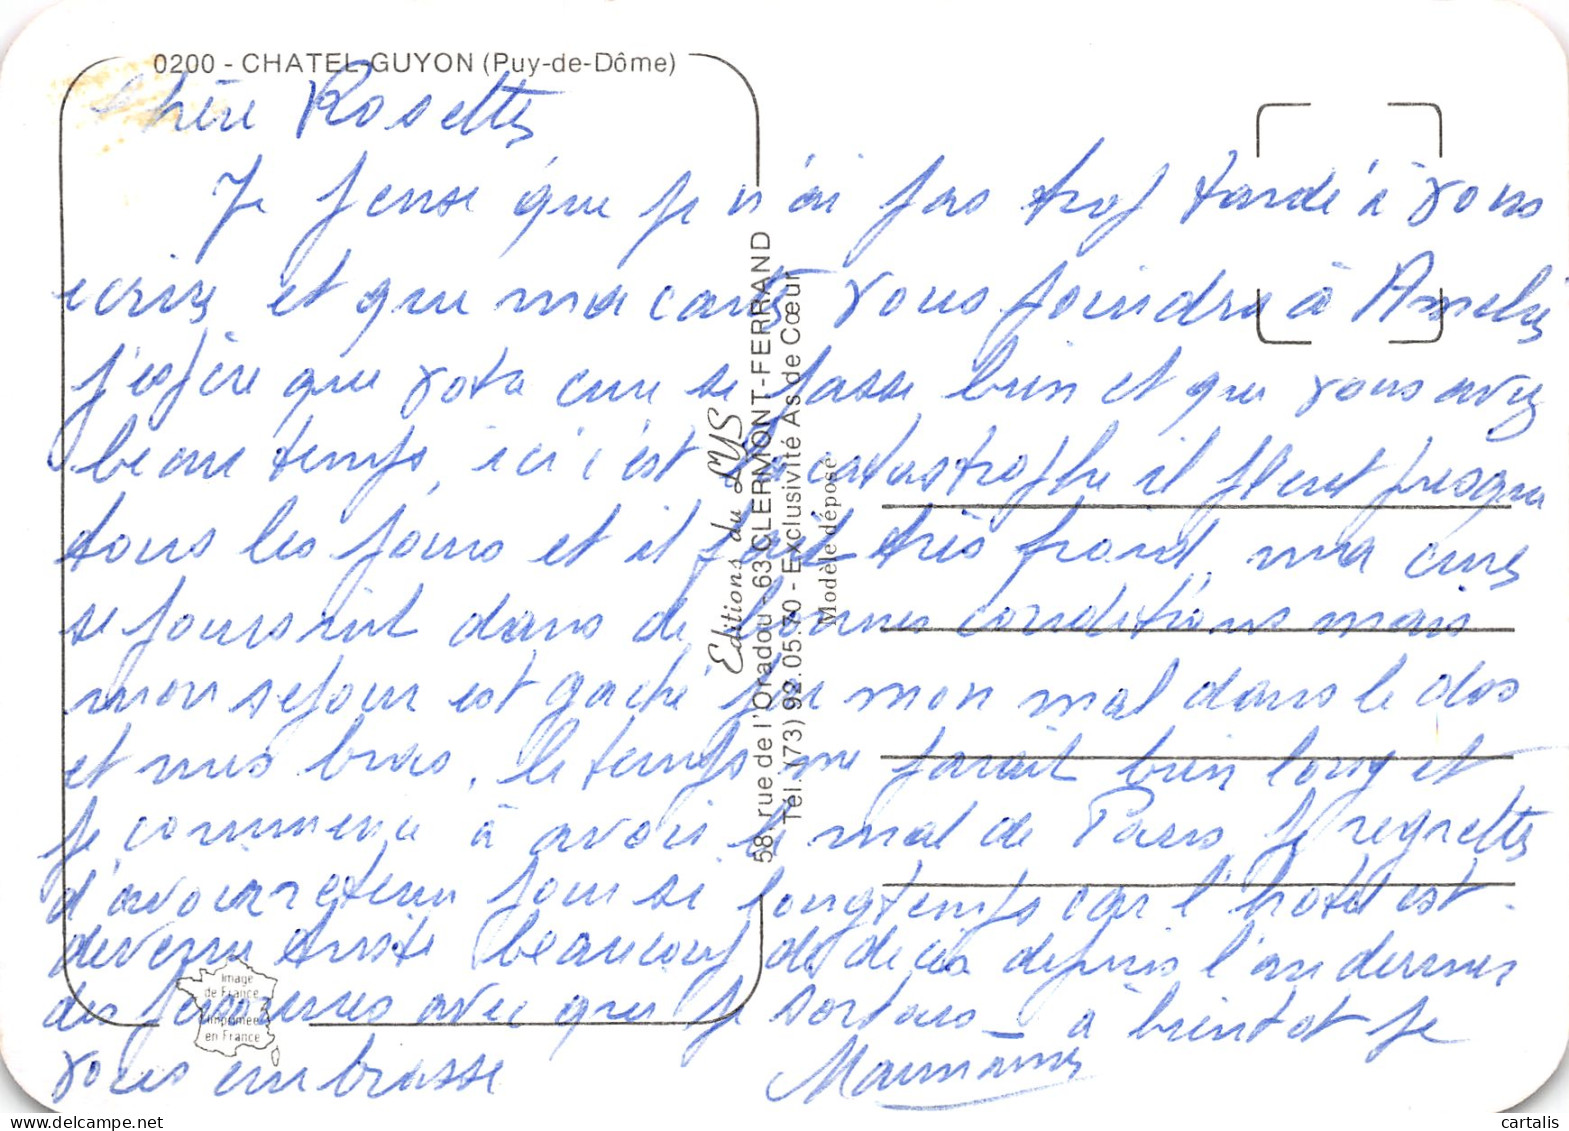 0200 - CHATEL-GUYON (Puy-de-Dôme)
Chère Rosette
Je pense que je n'ai pas trop tardé à vous
ecrire et que ma carte vous joindra à Amelie
j'espère que votre cure se passe bien et que vous avez
beau temps, ici c'est la catastrophe il pleut presque
tous les jours et il fait très froid, ma cure
se poursuit dans de bonnes conditions mais
mon sejour est gaché par mon mal dans le dos
et mes bras, le temps me parait bien long et
je commence à avoir le mal de Paris, je regrette
d'avoir retenu pour si longtemps car l'hotel est
devenu triste beaucoup de décès depuis l'an dernier
des personnes avec qui je sortais - à bientot je
vous embrasse
Editions du LYS
58, rue de l'Oradou - 63 CLERMONT-FERRAND
Tél. (73) 92.05.70 - Exclusivité As de Cœur
Modèle déposé
Image
de France
Imprimée
en France
cartalis